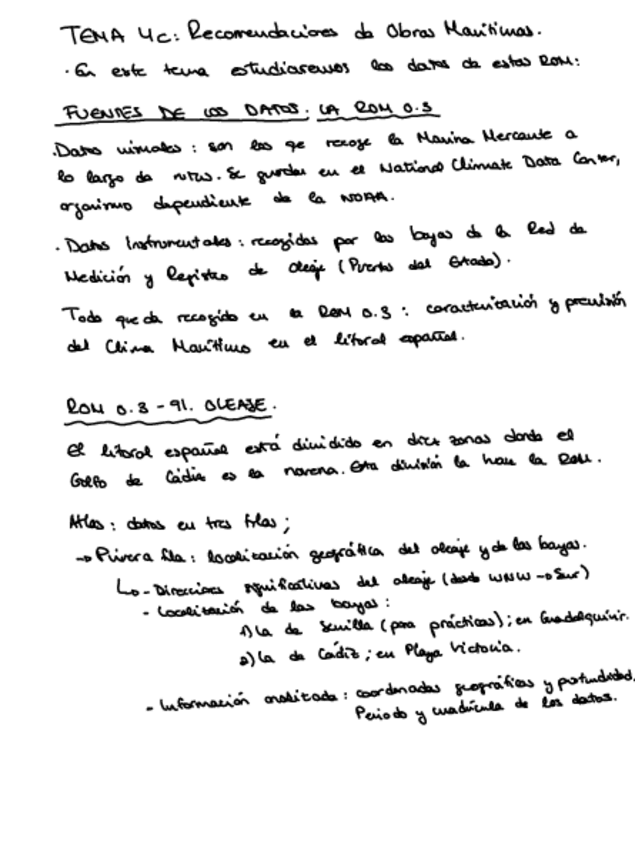 TEMA 4c: Recomendaciones de Obras Marítimas.
· En este tema estudiaremos los datos de estas ROM:
FUENTES DE LOS DATOS. LA ROM 0.3
· Datos visuales: son los qe recoge la Marina Mercante a
lo largo de rutas. Se guardan en el National Climate Data Center,
organismo dependiente de la NOAA.
· Datos Instrumentales: recogidas por las boyas de la Red de
Medición y Registro de Oleaje (Puertos del Estado).
Todo queda recogido en la ROM 0.3: caracterización y previsión
del Clima Marítimo en el litoral español.
ROM 0.3-91. OLEAJE.
El litoral español está dividido en diez zonas donde el
Golfo de Cádiz es la novena. Esta división la hace la ROM.
Atlas: datos en tres filas;
→ Primera fila: localización geográfica del oleaje y de las boyas.
↳ - Direcciones significativas del oleaje (desde WNW → Sur)
- Localización de las boyas:
1) La de Sevilla (para prácticas); en Guadalquivir.
2) La de Cádiz; en Playa Victoria.
- Información analizada: coordenadas geográficas y profundidad.
Periodo y cuadrícula de los datos.